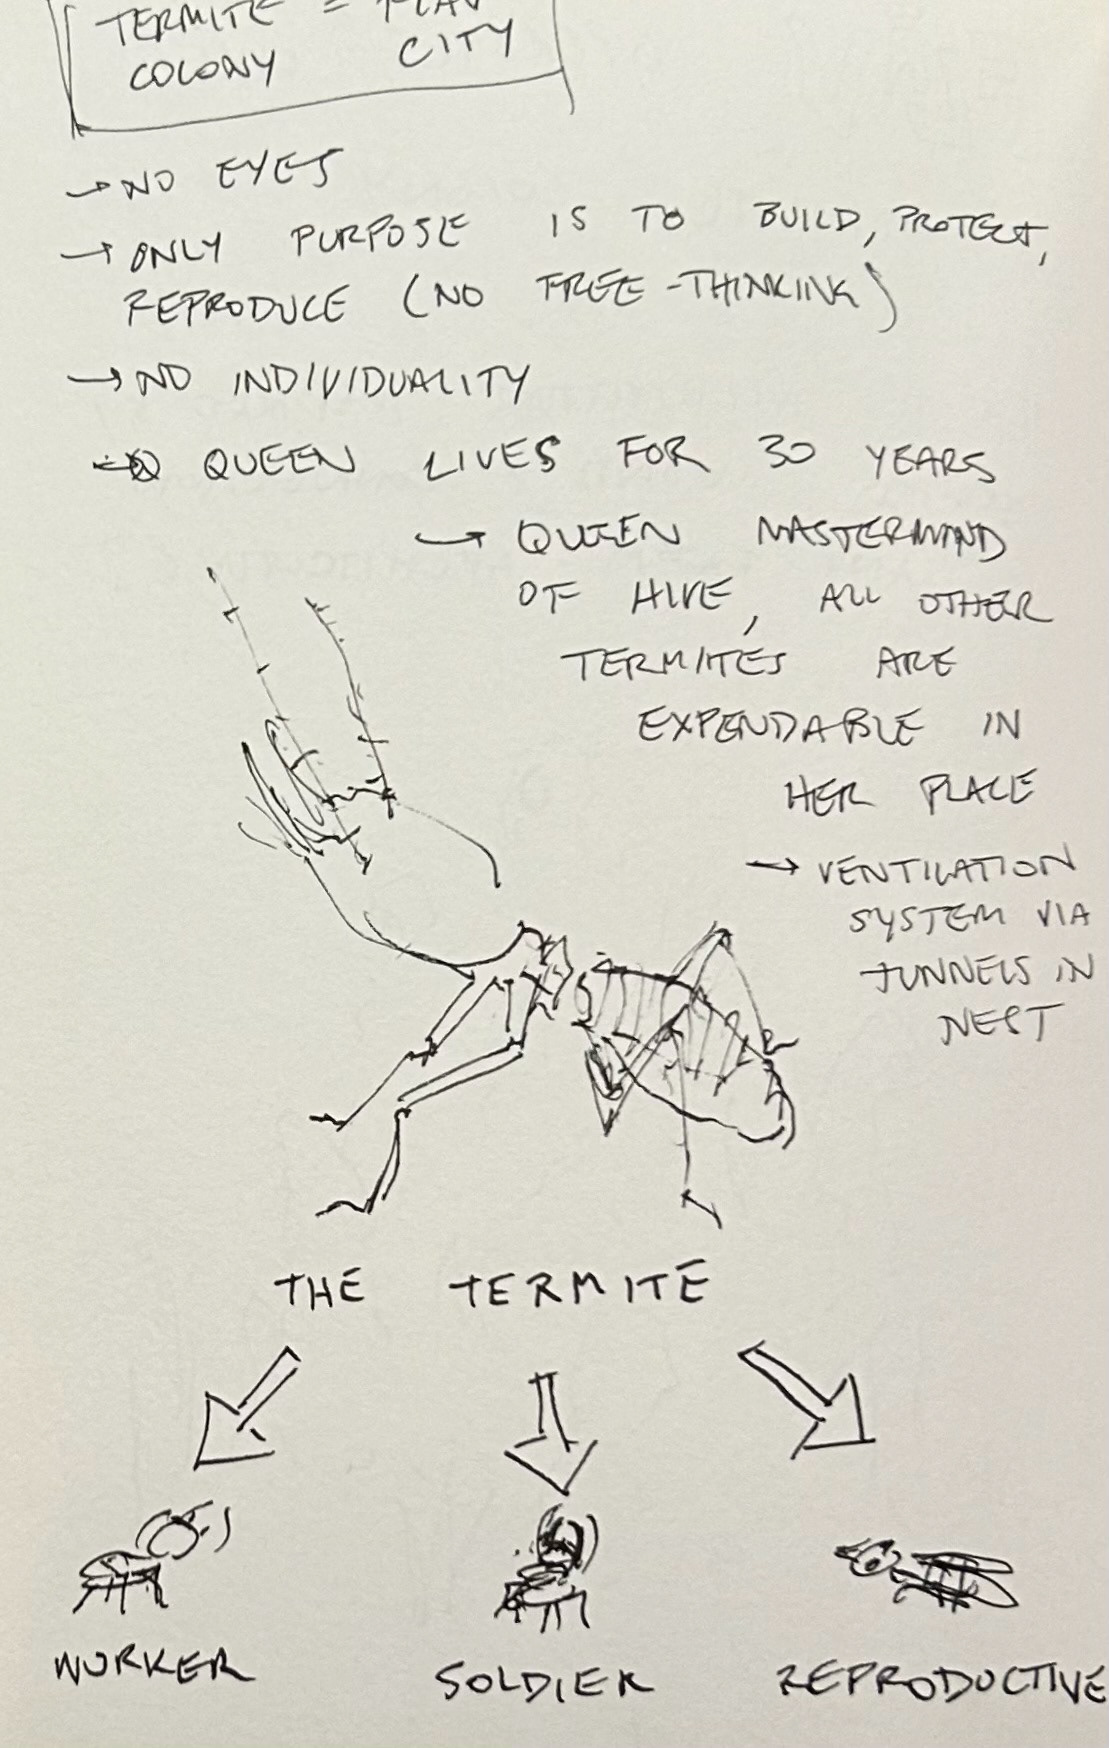 TERMITE =
COLONY CITY
→ NO EYES
→ ONLY PURPOSE IS TO BUILD, PROTECT,
REPRODUCE (NO FREE-THINKING)
→ NO INDIVIDUALITY
→ QUEEN LIVES FOR 30 YEARS
→ QUEEN MASTERMIND
OF HIVE, ALL OTHER
TERMITES ARE
EXPENDABLE IN
HER PLACE
→ VENTILATION
SYSTEM VIA
TUNNELS IN
NEST
THE TERMITE
WORKER SOLDIER REPRODUCTIVE